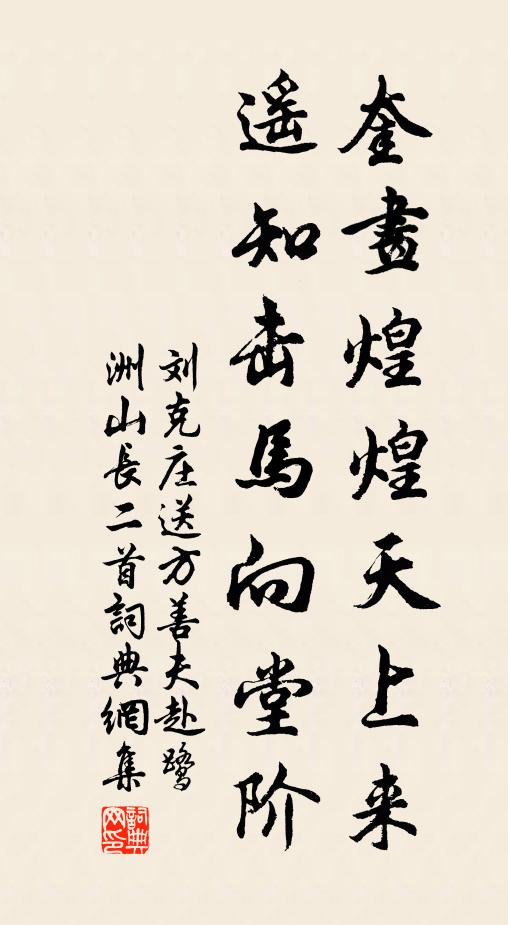 奎畫煌煌天上来
遥知击馬向堂阶
刘克庄送方善夫赴鹭
洲山長二首詞典網集
詞典
网印